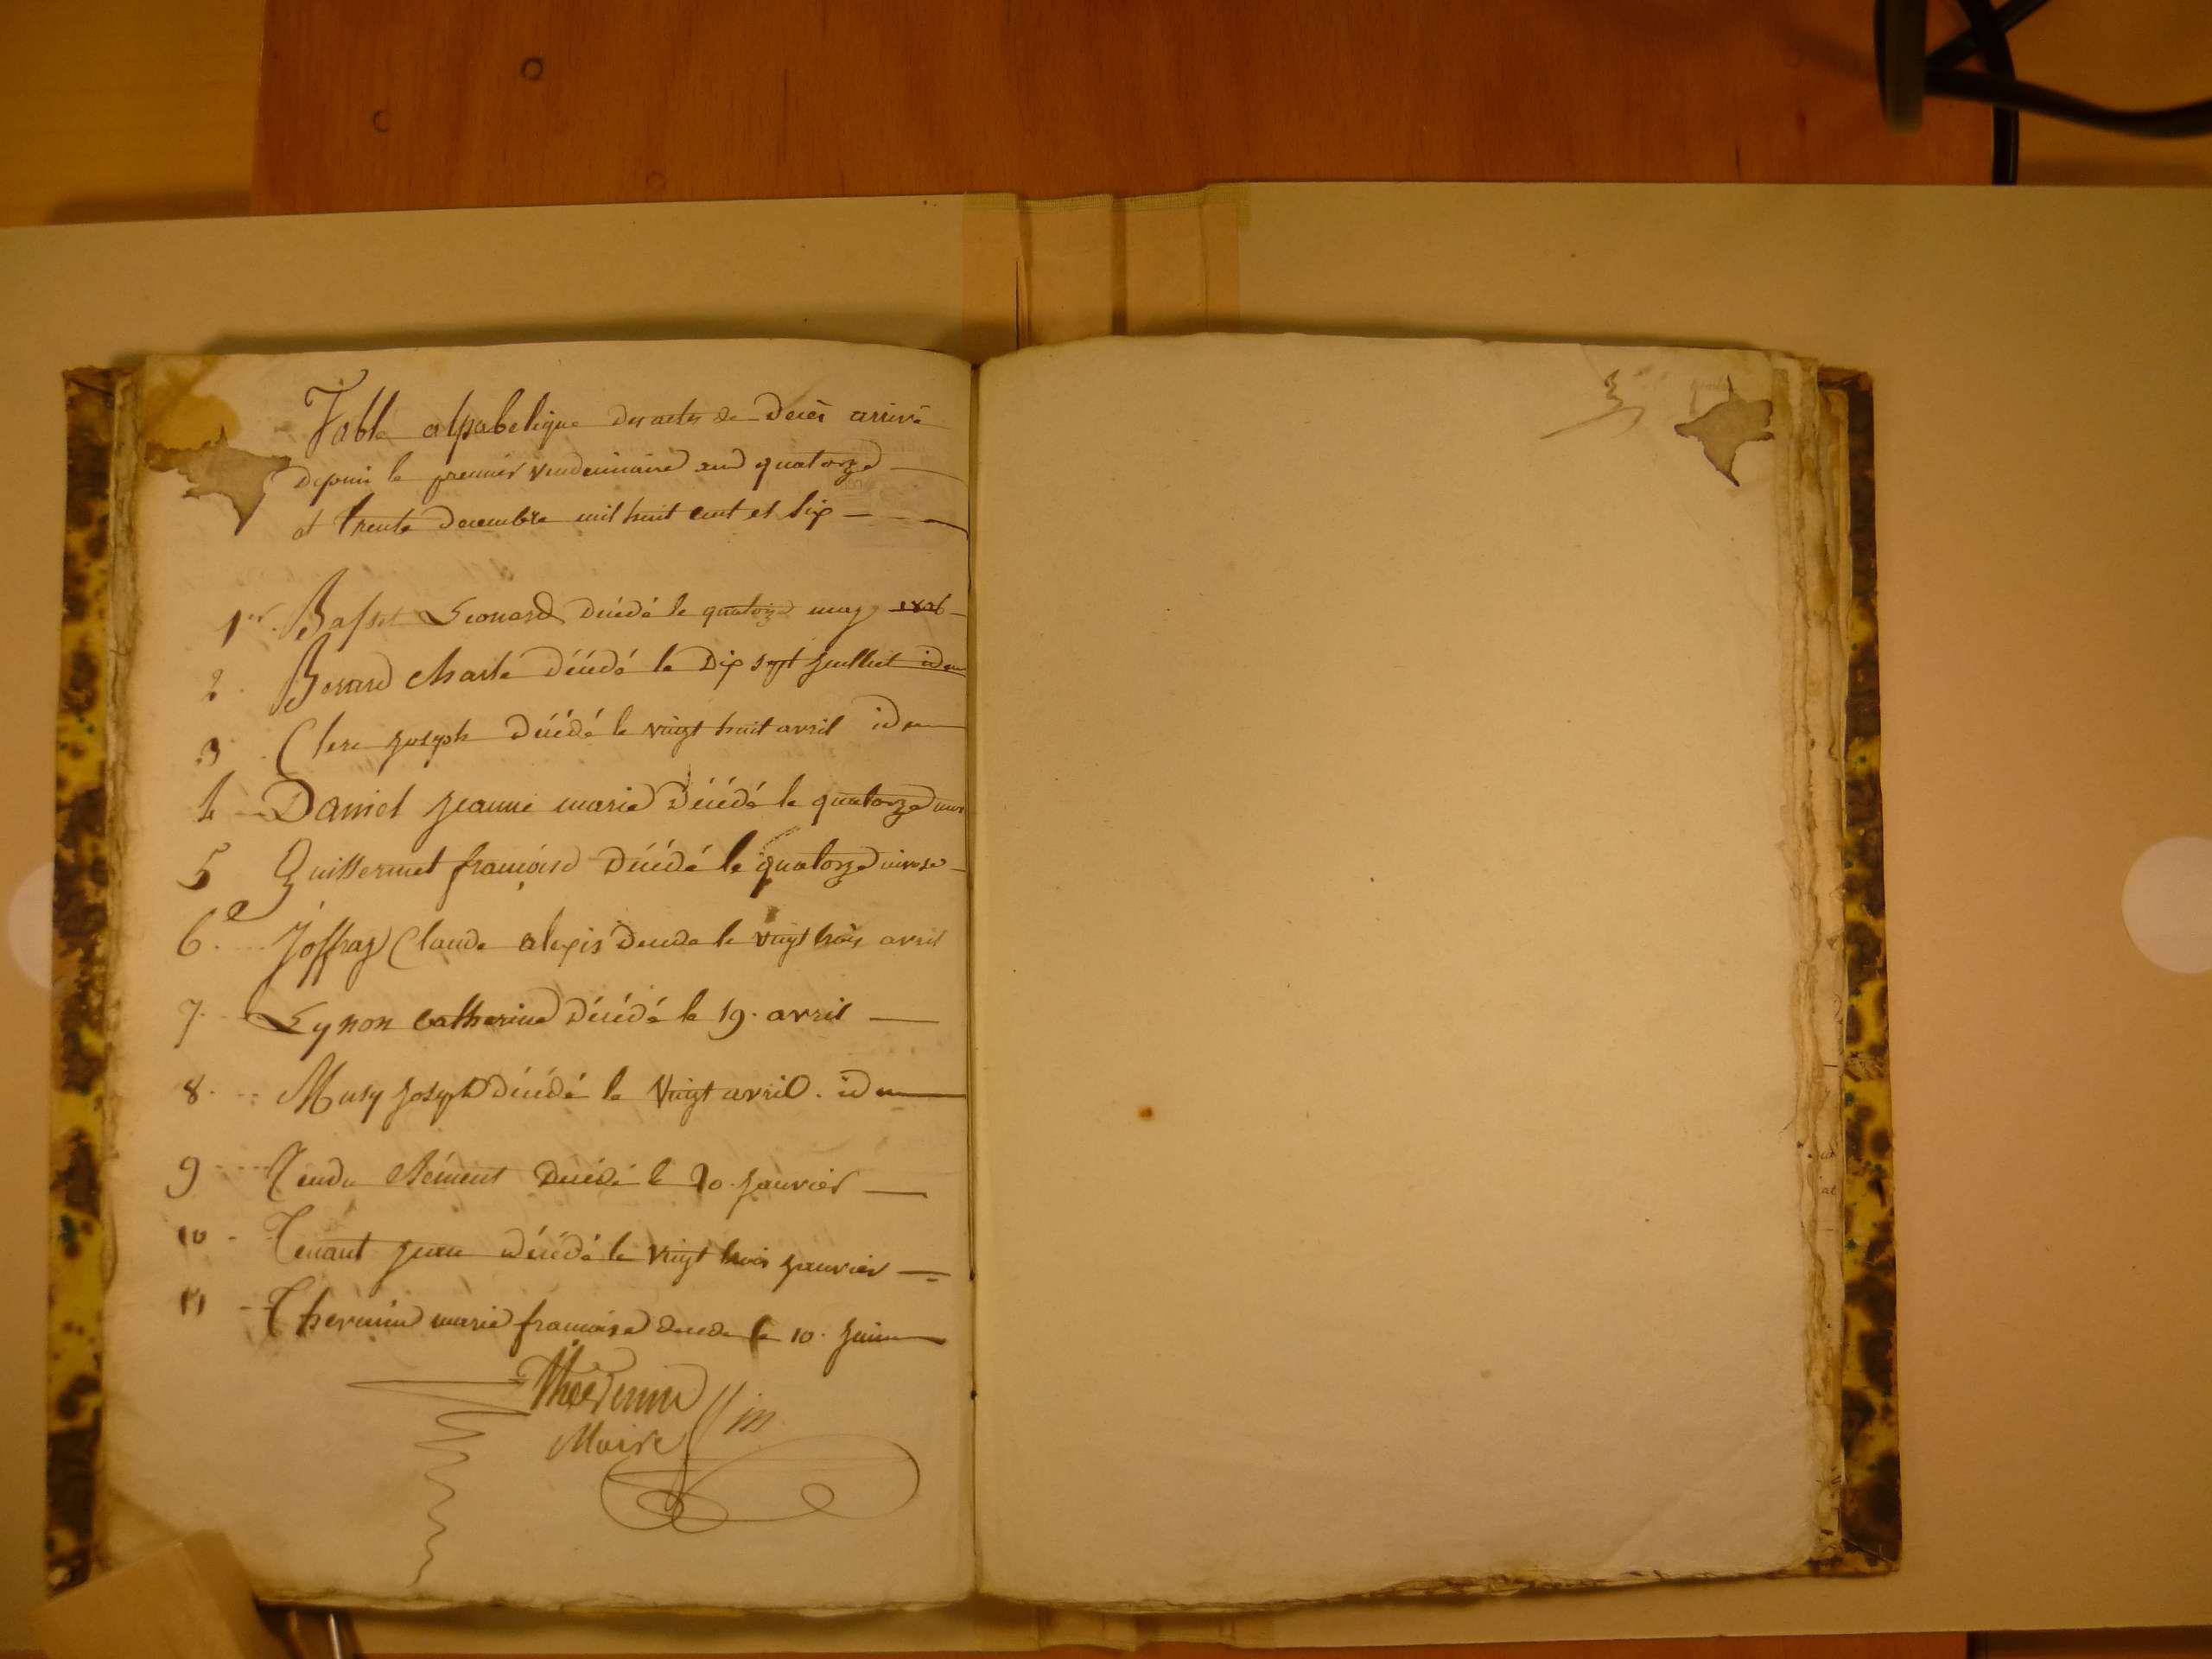 Table alpabetique des actes de Decès arrivé
Depuis le premier vendemiaire and quatorze
et trente Decembre mil huit cent et six
1er. Basset Leonard décédé le quatorze may 1806
2. Berard Charle décédé le Dix sept juilliet idem
3. Clerc joseph Décédé le vingt huit avril idem
4 Daniel jeanne marie Décédé le quatorze mars
5 Guillermet françoise Décédé le quatorze nivose
6e. Joffray Claude alexis Décédé le vingt trois avril
7. Lynon Catherine Décédé le 19. avril
8. Musy joseph décédé le Vingt avril. idem
9 Tendu Clément Décédé le 20. janvier
10 Tenant jean décédé le vingt trois janvier
11 Thermin marie francoise décédé le 10. juin
Maire